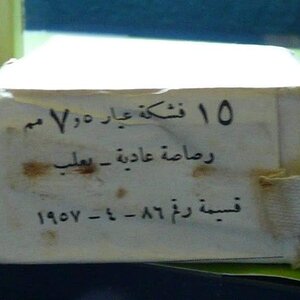 ١٥ فشكة عيار ٧٫٥ مم
رصاصة عادية - بعلب
قسيمة رقم ٨٦ - ٤ - ١٩٥٧